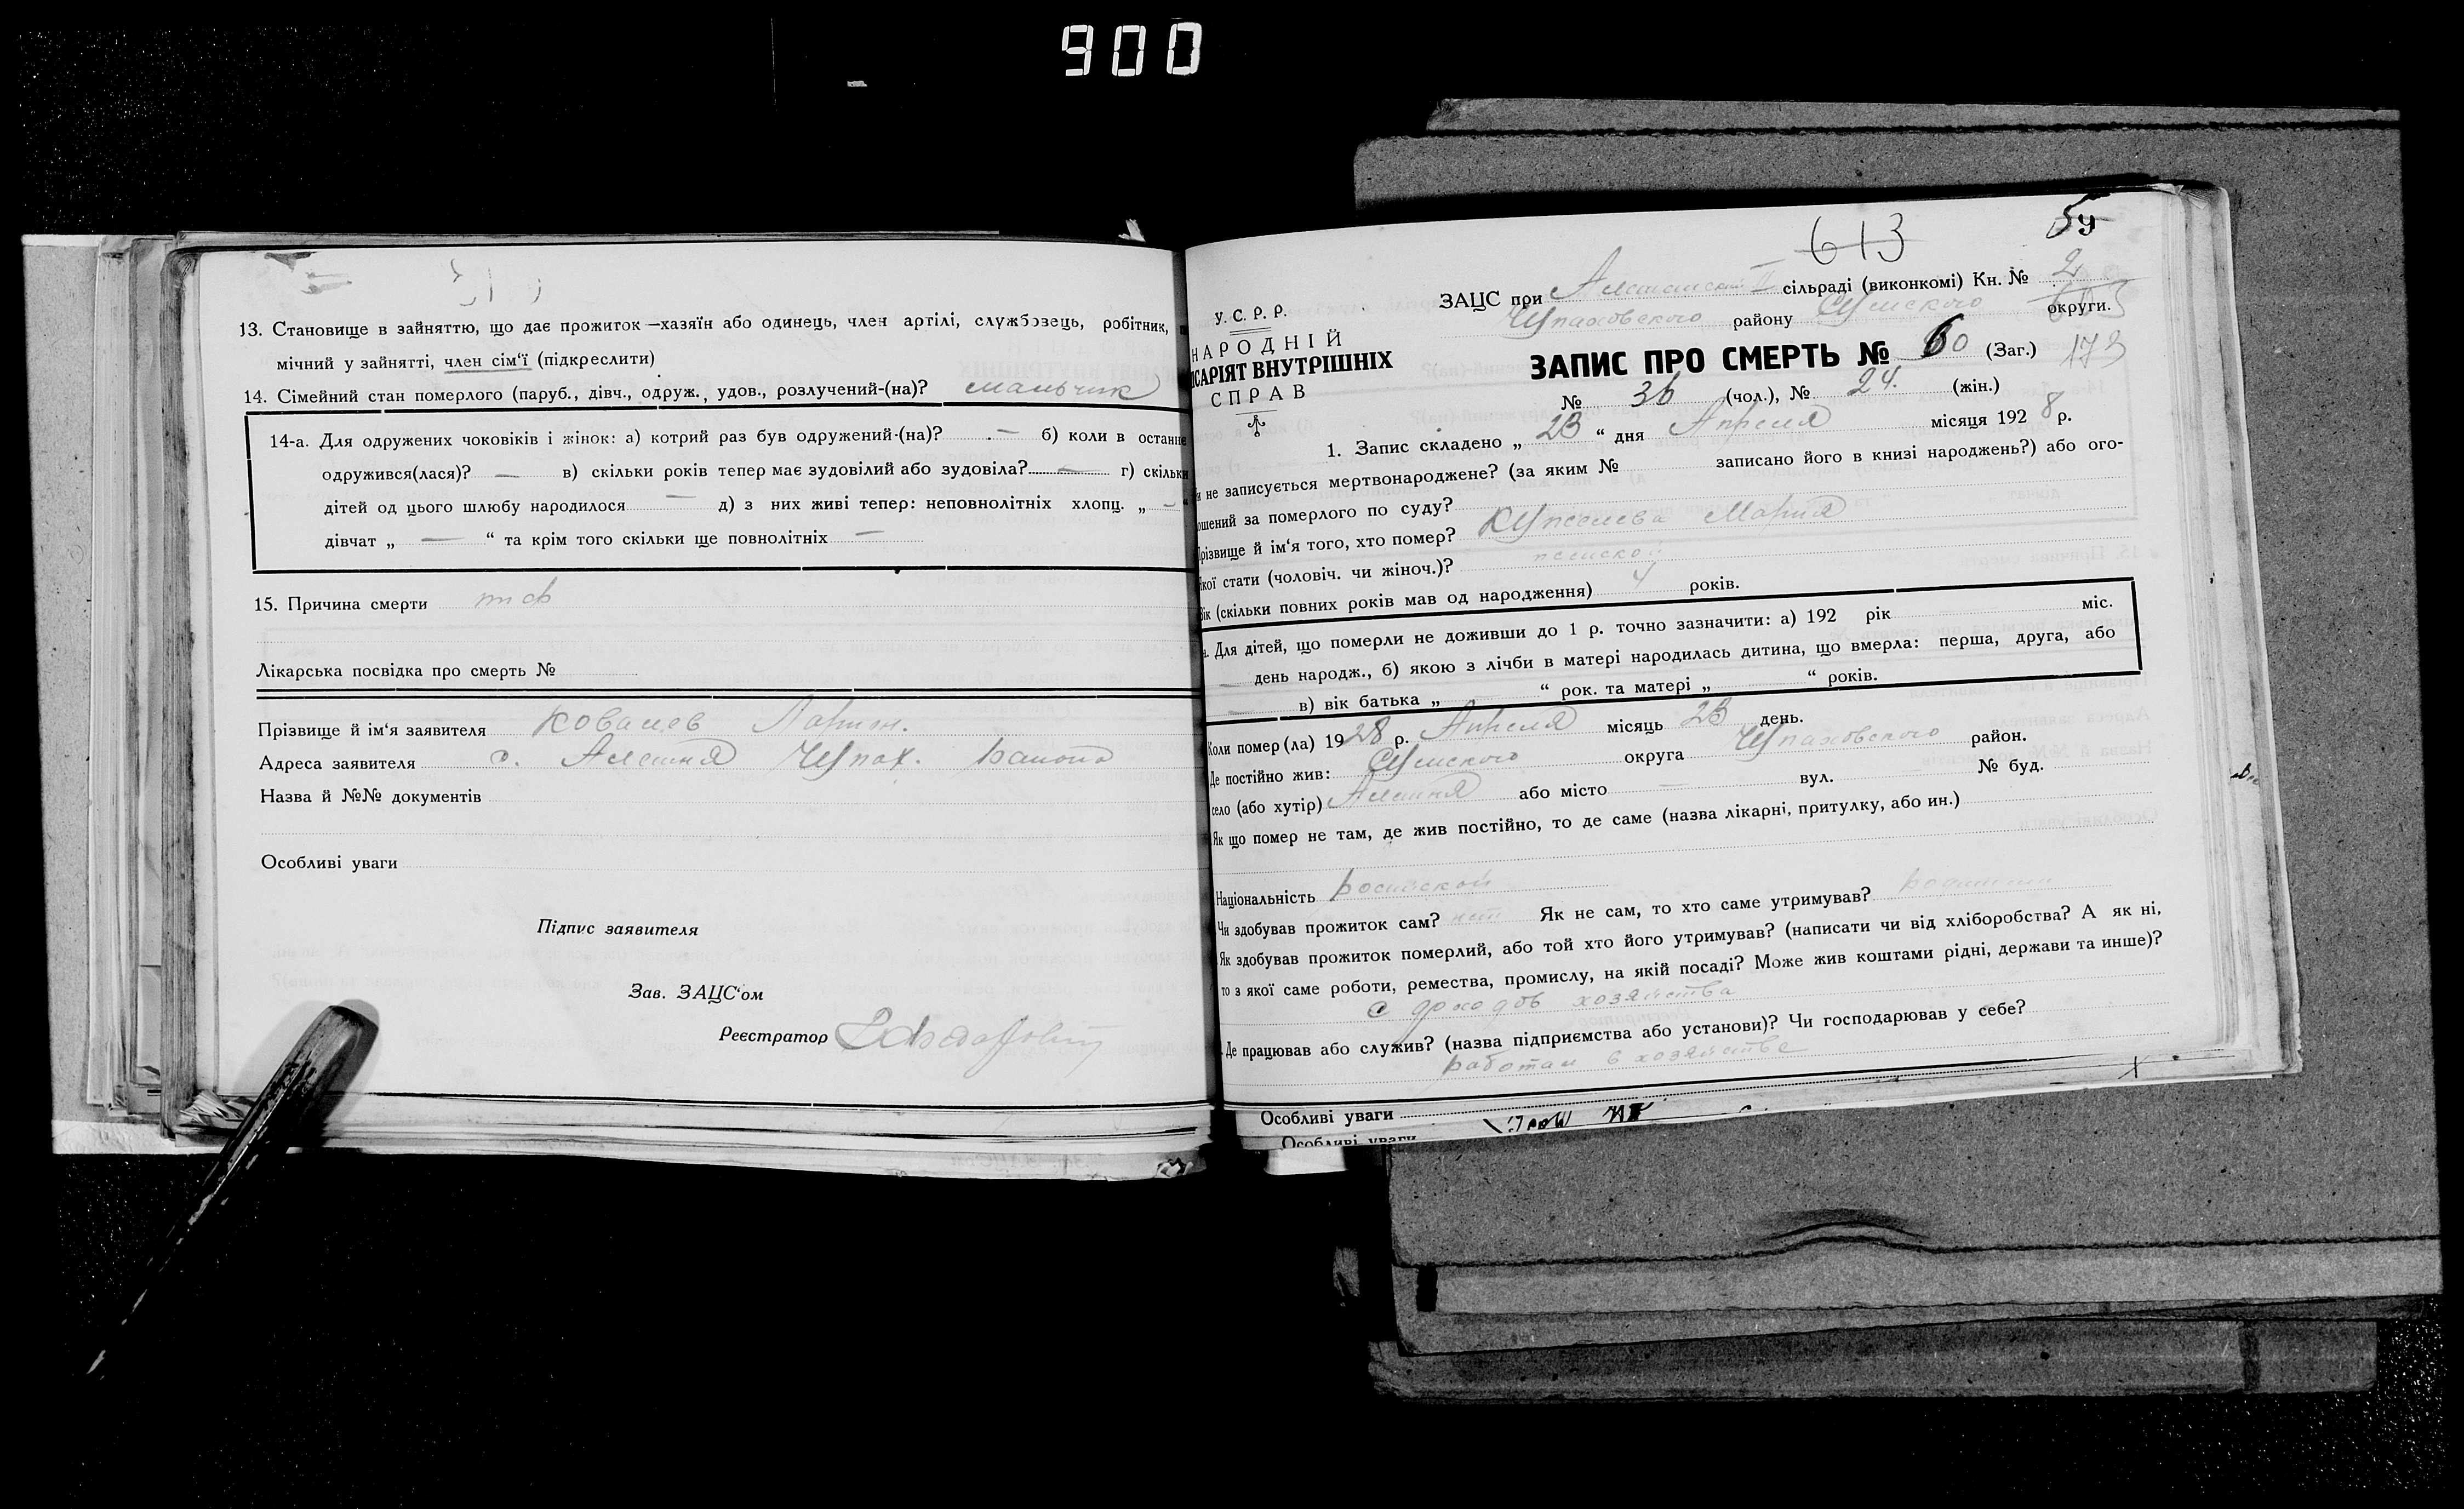 900
13. Становище в зайняттю, що дає прожиток —хазяїн або одинець, член артілі, службовець, робітник,
мічний у зайнятті, член сім'ї (підкреслити)
14. Сімейний стан померлого (паруб., дівч., одруж., удов., розлучений-(на)? мальчик
14-а. Для одружених чоковіків і жінок: а) котрий раз був одружений-(на)? — б) коли в останнє
одружився(лася)? — в) скільки років тепер має зудовілий або зудовіла? — г) скільки
дітей од цього шлюбу народилося — д) з них живі тепер: неповнолітніх хлопц. „ —
дівчат „ — “ та крім того скільки ще повнолітніх —
15. Причина смерти тиф
Лікарська посвідка про смерть №
Прізвище й ім'я заявителя Ковалев
Адреса заявителя с.
Назва й №№ документів
Особливі уваги
Підпис заявителя
Зав. ЗАЦС'ом
Реєстратор
613
59
У. С. Р. Р.
НАРОДНІЙ
ІСАРІЯТ ВНУТРІШНІХ
СПРАВ
ЗАЦС при сільраді (виконкомі) Кн. № 2
району Сумского округи.
ЗАПИС ПРО СМЕРТЬ № 60 (Заг.) 173
№ 36 (чол.), № 24. (жін.)
1. Запис складено „ 23 “ дня Апреля місяця 1928 р.
и не записується мертвонароджене? (за яким № записано його в книзі народжень?) або ого-
ошений за померлого по суду?
різвище й ім'я того, хто помер? Мария
кої стати (чоловіч. чи жіноч.)? женской
ік (скільки повних років мав од народження) 4 років.
а. Для дітей, що померли не доживши до 1 р. точно зазначити: а) 192 рік міс.
день народж., б) якою з лічби в матері народилась дитина, що вмерла: перша, друга, або
в) вік батька „ “ рок. та матері „ “ років.
Коли помер (ла) 1928 р. Апреля місяць 23 день.
Де постійно жив: Сумского округа район.
село (або хутір) або місто — вул. № буд.
Як що помер не там, де жив постійно, то де саме (назва лікарні, притулку, або ин.)
Національність
Чи здобував прожиток сам? нет Як не сам, то хто саме утримував?
Як здобував прожиток померлий, або той хто його утримував? (написати чи від хліборобства? А як ні,
то з якої саме роботи, ремества, промислу, на якій посаді? Може жив коштами рідні, держави та инше)?
с доходов хозяйства
Де працював або служив? (назва підприємства або установи)? Чи господарював у себе?
работал в хозяйстве
Особливі уваги
Особливі уваги